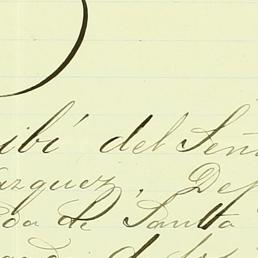 ibí del Señ
azquez, Dep
da de Santta